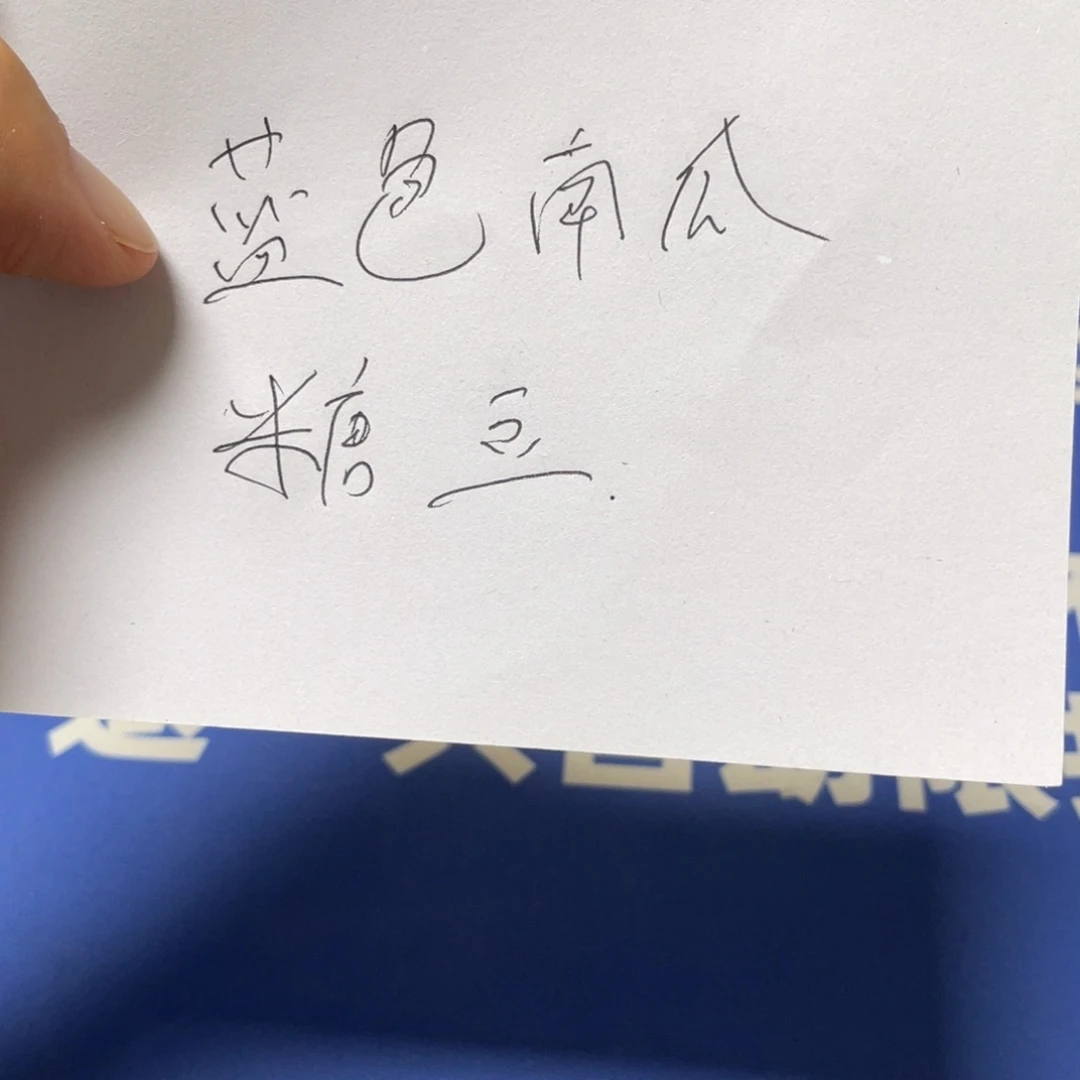 蓝色南瓜
糖豆.